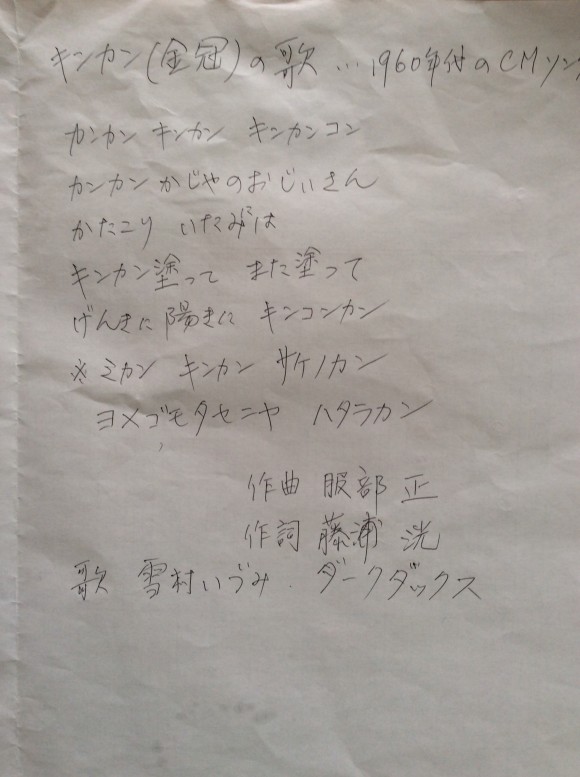 キンカン(金冠)の歌…1960年付のCMソング
カンカン キンカン キンカンコン
カンカンかじゃのおじいさん
かたこり いたみには
キンカン塗って また塗って
げんきに陽きに キンコンカン
※ミカン キンカン サケノカン
ヨメゴモタセニヤ ハタラカン
作曲 服部 正
作詞 藤浦 洸
歌 雪村いづみ．ダークダックス